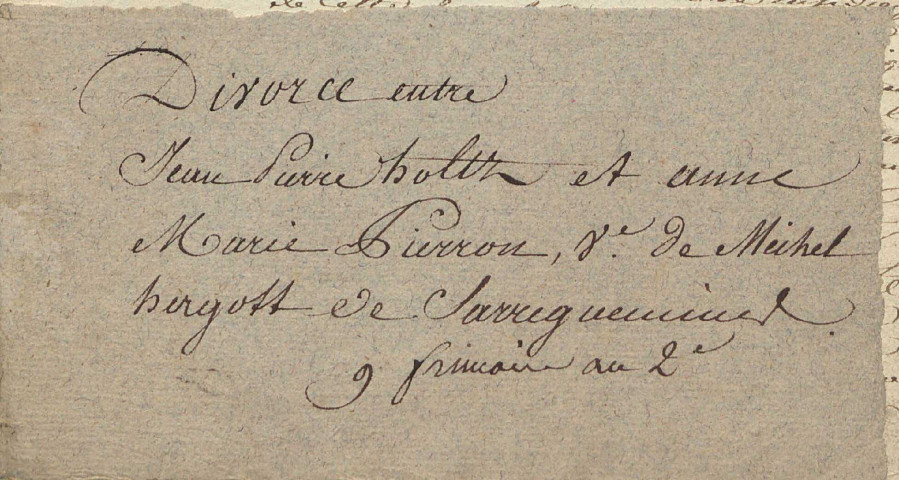 Divorce entre
Jean Pierre holtz et anne
Marie Pierron, Ve. de Michel
hergott de Sarreguemines
9 frimaire an 2e